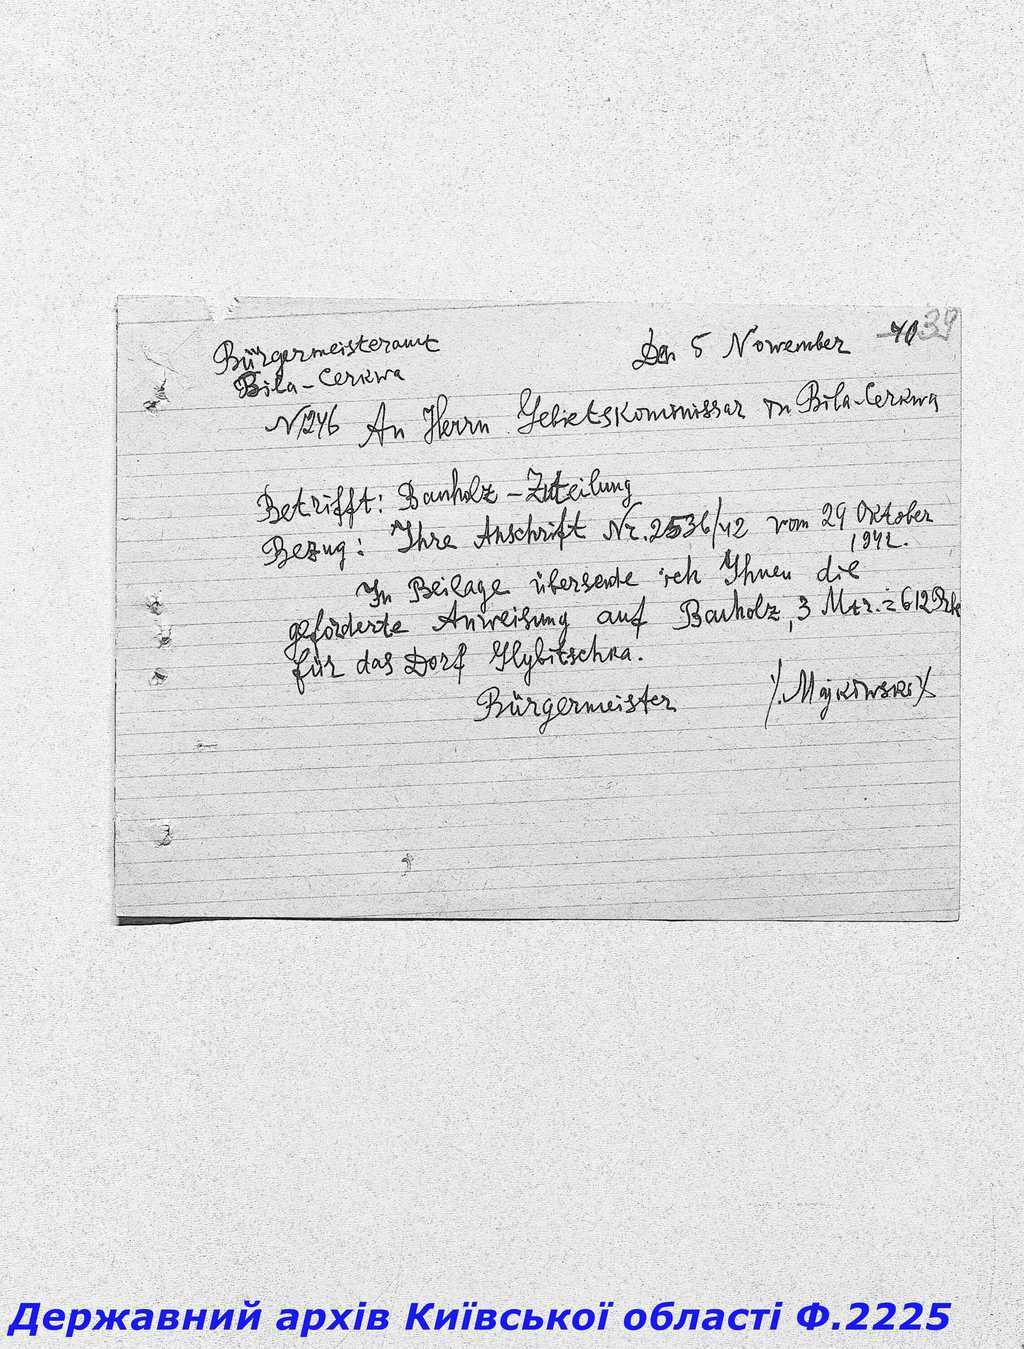 Bürgermeisteramt
Bila-Cerkwa
Den 5 November
40 39
N1246 An Herrn Gebietskommissar in Bila-Cerkwa
Betrifft: Bauholz-Zuteilung
Bezug: Ihre Anschrift Nr. 2536/42 vom 29 Oktober
1942.
In Beilage übersende ich Ihnen die
geforderte Anweisung auf Bauholz, 3 Mtr. = 612
für das Dorf Hlybitschka.
Bürgermeister
Державний архів Київської області Ф.2225